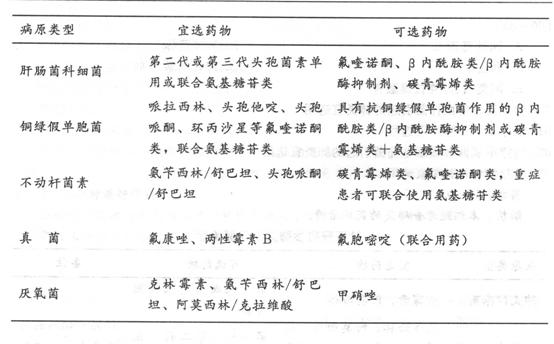 病原类型 宜选药物 可选药物
肝肠菌科细菌 第二代或第三代头孢菌素单 氟喹诺酮、β内酰胺类/β内酰胺
用或联合氨基糖苷类 酶抑制剂、碳青霉烯类
铜绿假单胞菌 哌拉西林、头孢他啶、头孢 具有抗铜绿假单孢菌作用的β内
哌酮、环丙沙星等氟喹诺酮 酰胺类/β内酰胺酶抑制剂或碳青
类，联合氨基糖苷类 霉烯类+氨基糖苷类
不动杆菌素 氨苄西林/舒巴坦、头孢哌酮 碳青霉烯类、氟喹诺酮类，重症
/舒巴坦 患者可联合使用氨基糖苷类
真 菌 氟康唑、两性霉素B 氟胞嘧啶（联合用药）
厌氧菌 克林霉素、氨苄西林/舒巴 甲硝唑
坦、阿莫西林/克拉维酸